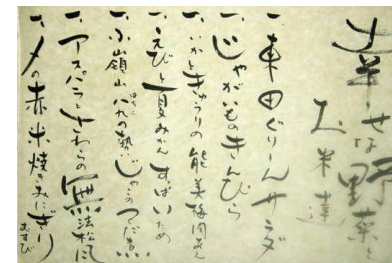 幸せな野菜と
お米達
一、車田ぐりーんサラダ
一、じゃがいものきんぴら
一、いかときゅうりの能美梅肉あえ
一、えびと夏みかんすぱいため
一、小嶺山八九の勢いじゃこのつくだ煮
一、アスパラとさわらの無法松风
一、〆の赤米焼きおにぎり
むすび